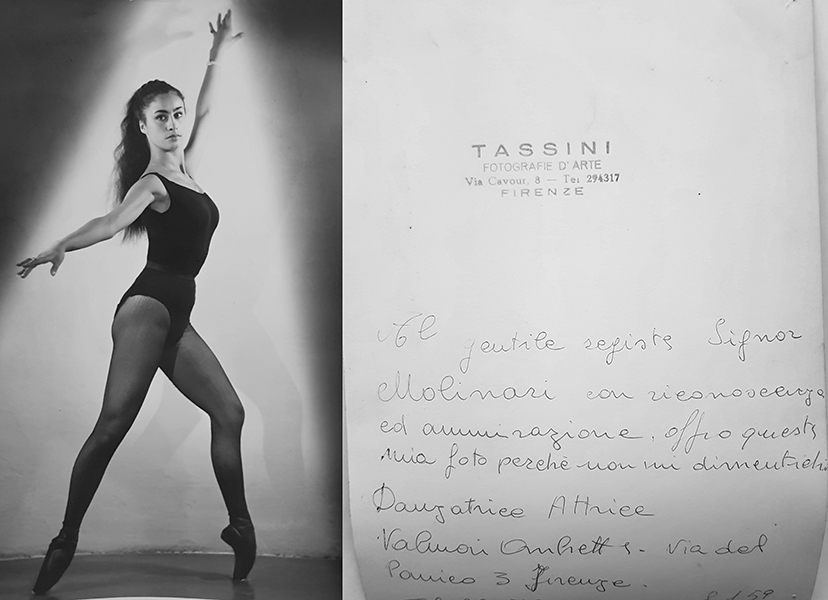 TASSINI
FOTOGRAFIE D'ARTE
Via Cavour, 8 — Tel 294317
FIRENZE
Al gentile regista Signor
Molinari con riconoscenza
ed ammirazione, offro questa
mia foto perchè non mi dimentichi
Danzatrice Attrice
Valmori - Via del
Panico 3 Firenze.